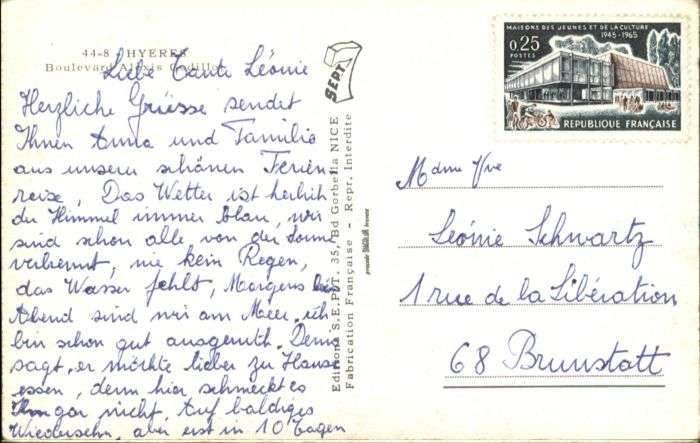 44-8 HYERES
Boulevard Alexis Godillot
Liebe Tante Léonie
Herzliche Grüsse sendet
Ihnen Anna und Familie
aus unserer schönen Ferien
reise, Das Wetter ist herlich
der Himmel immer blau, wir
sind schon alle von der Sonne
verbrennt, nie kein Regen,
das Wasser fehlt, Morgens bis
Abend sind wir am Meer, ich
bin schon gut ausgeruth.
sagt, er möchte lieber zu Hause
essen, denn hier schmeckt es
Ihm gar nicht, Auf baldiges
Wiedersehn, aber erst in 10 Tagen
SEPT
Editions S.E.P.T. 35, Bd Gorbella NICE
Fabrication Française - Repr. Interdite
MAISONS DES JEUNES ET DE LA CULTURE
1945-1965
0,25
POSTES
REPUBLIQUE FRANÇAISE
Mdme Yve
Léonie Schwartz
1 rue de la Libération
68 Brunstatt